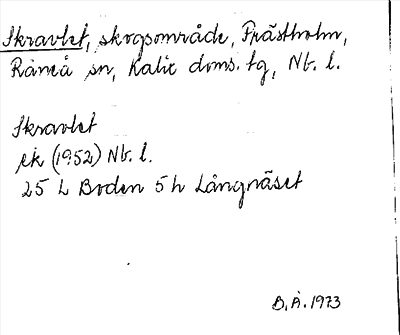 Skravlet, skogsområde, Prästholm,
Råneå sn, Kalix doms. tg, Nb. l.
Skravlet
ek (1952) Nb. l.
25 L Boden 5 h Långnäset
B. Å. 1973